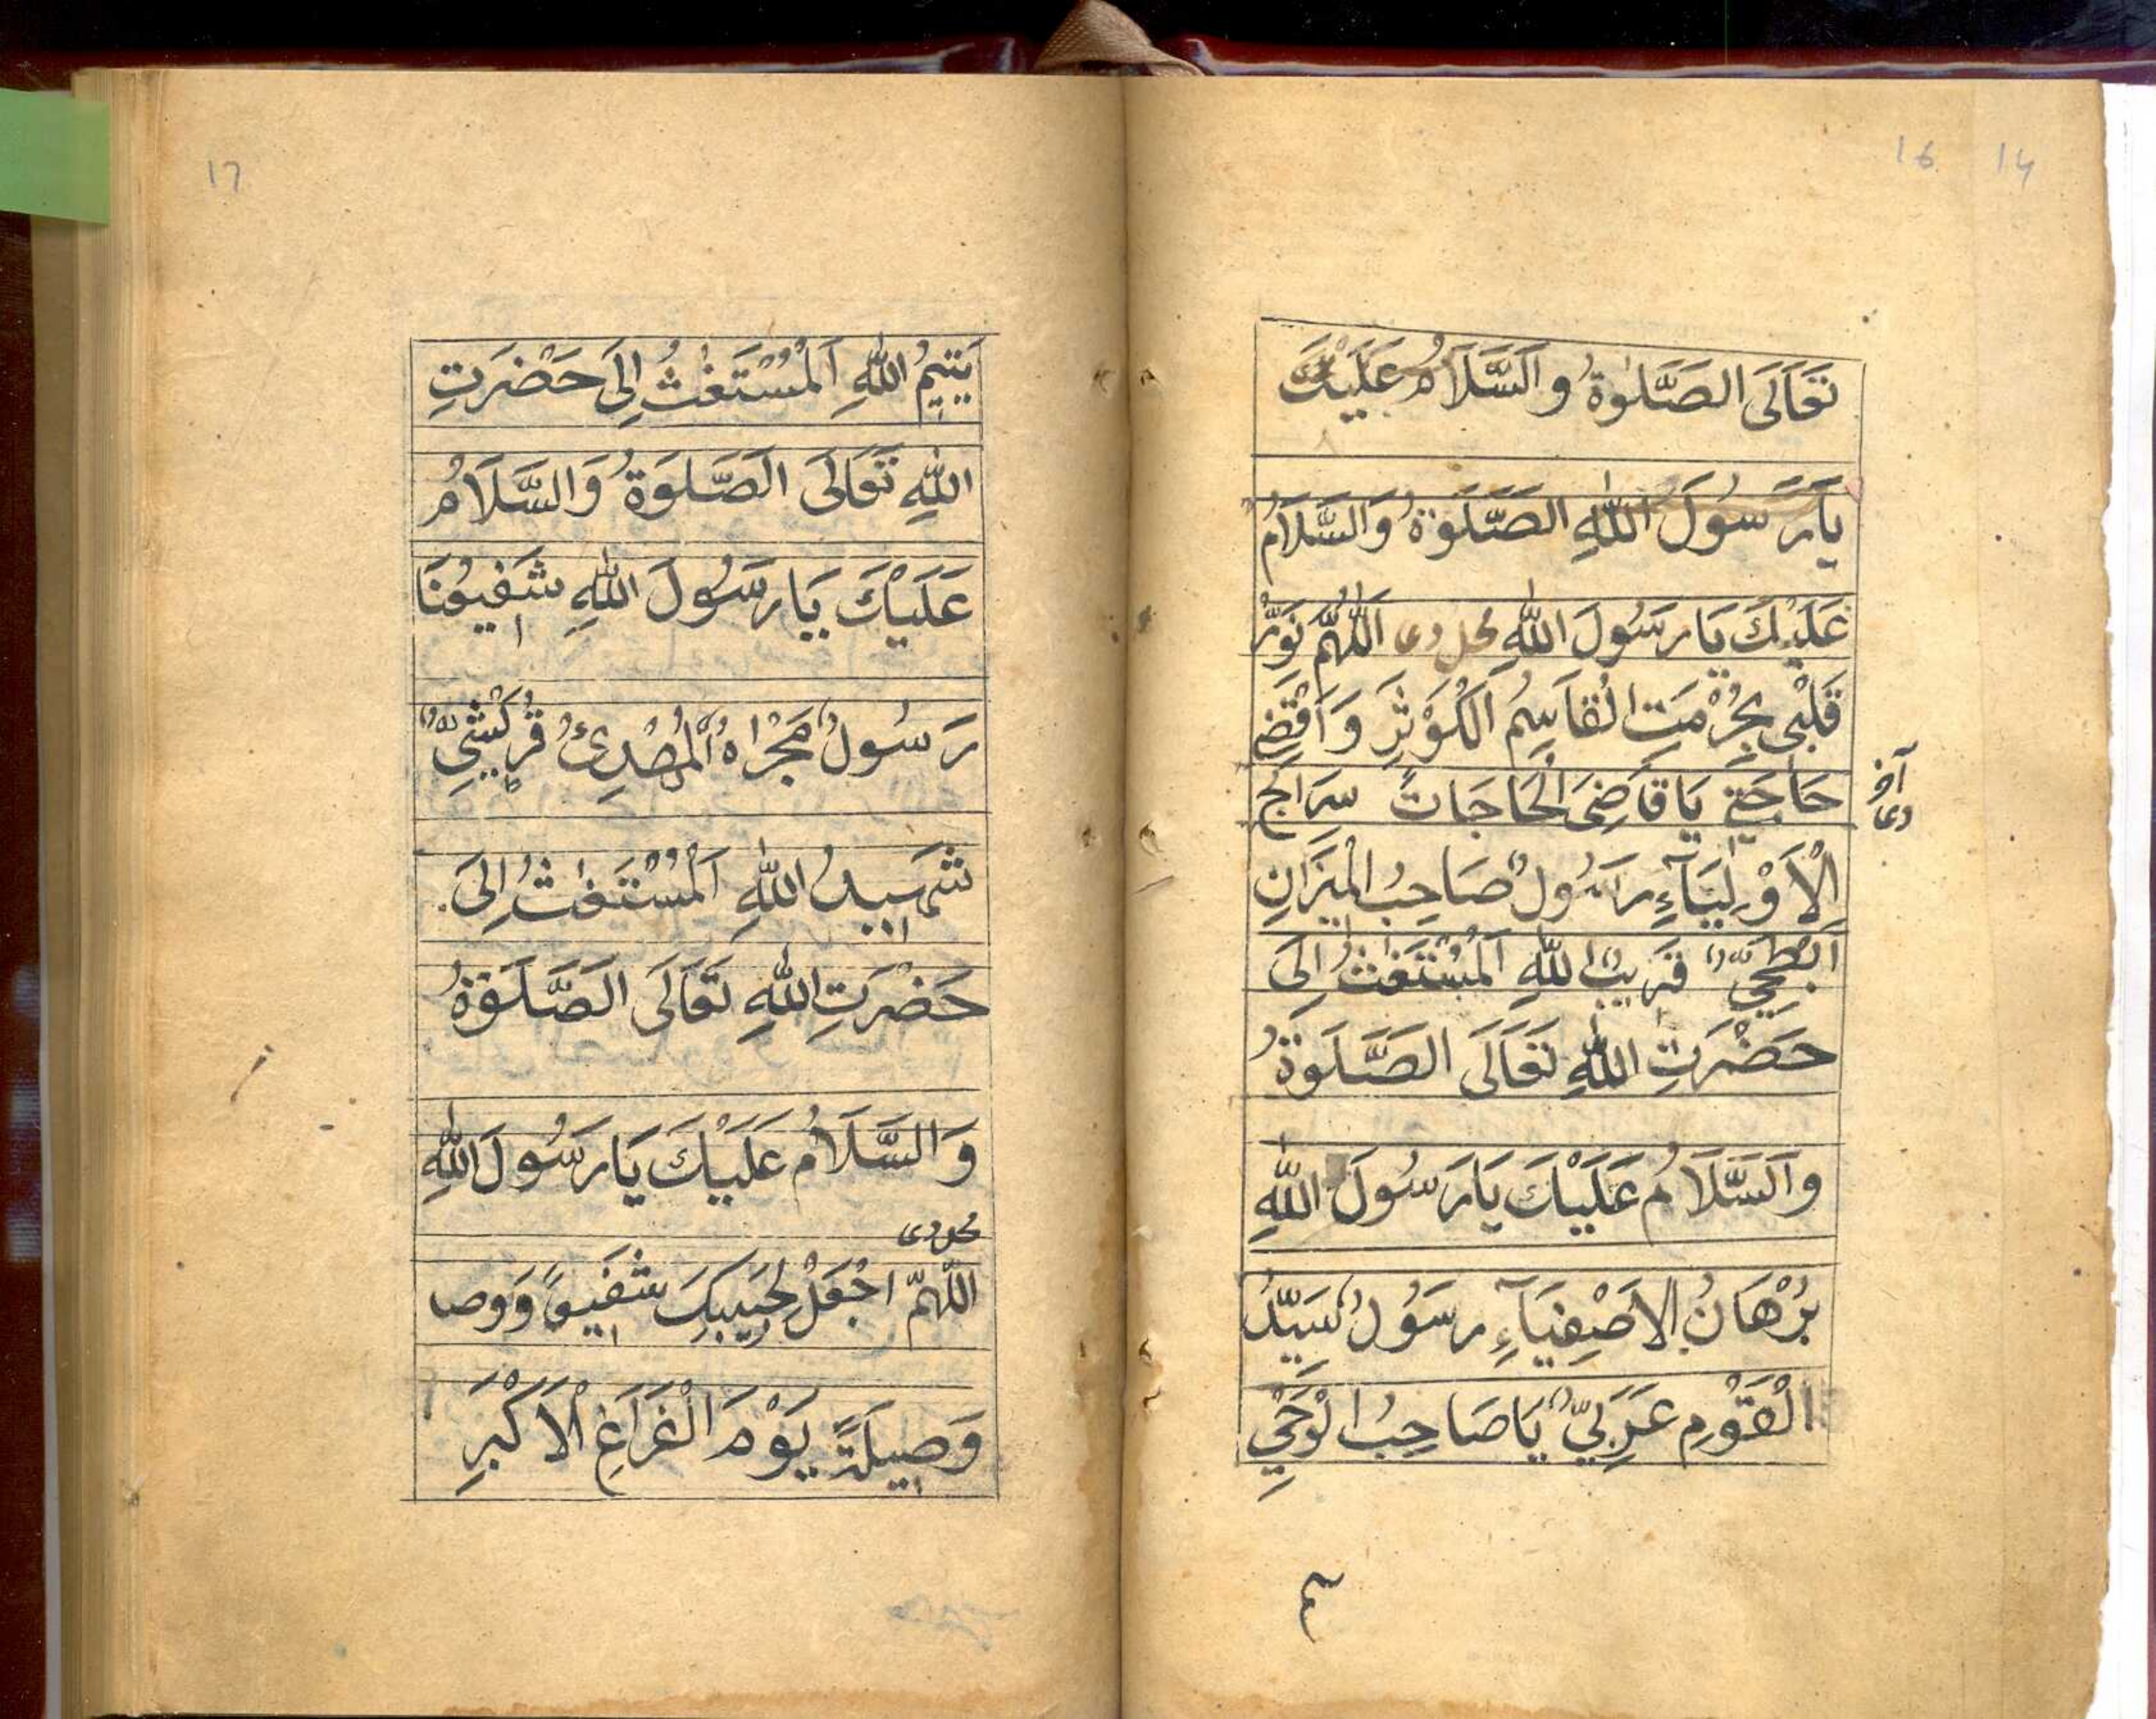 16 14
تَعَالَى الصَّلٰوةُ وَالسَّلَامُ عَلَيْكَ
يَا رَسُولَ اللّٰهِ الصَّلَوةُ وَالسَّلَامُ
عَلَيْكَ يَا رَسُولَ اللّٰهِ محل دعى اَللّٰهُمَّ نَوِّرْ
قَلْبِى بِحُرْمَتِ الْقَاسِمُ الْكَوْثَرِ وَاقْضِ
حَاجَتِى يَا قَاضِىَ الْحَاجَاتِ سِرَاجُ
الْاَوْلِيَآءِ رَسُولٌ صَاحِبُ الْمِيْزَانِ
اَبْطَحِيٌّ قَرِيْبُ اللّٰهِ اَلْمُسْتَغٰثُ اِلَى
حَضْرَتِ اللّٰهِ تَعَالَى الصَّلَوةُ
وَالسَّلَامُ عَلَيْكَ يَا رَسُولَ اللّٰهِ
بُرْهَانُ الاَصْفِيَآءِ رَسُولٌ سَيِّدُ
الْقَوْمِ عَرَبِيٌّ يَا صَاحِبُ الْوَحْيِ
17
يَتِيْمُ اللّٰهِ اَلْمُسْتَغٰثُ اِلَى حَضْرَتِ
اللّٰهِ تَعَالَى الصَّلَوةُ وَالسَّلَامُ
عَلَيْكَ يَا رَسُولَ اللّٰهِ شَفِيْعُنَا
رَسُولٌ مَجْرَاهُ الْمُهْدِىُ قُرَيْشِيٌّ
شَهِيدُ اللّٰهِ اَلْمُسْتَغٰثُ اِلَى
حَضْرَتِ اللّٰهِ تَعَالَى الصَّلَوةُ
وَالسَّلَامُ عَلَيْكَ يَا رَسُولَ اللّٰهِ
محل دعى
اللّٰهُمَّ اجْعَلْ لِحَبِيبِكَ شَفِيعًا وَوصا
وَصِيلَةً يَوْمَ الْغَرَاغِ الْاَكْبَرِ